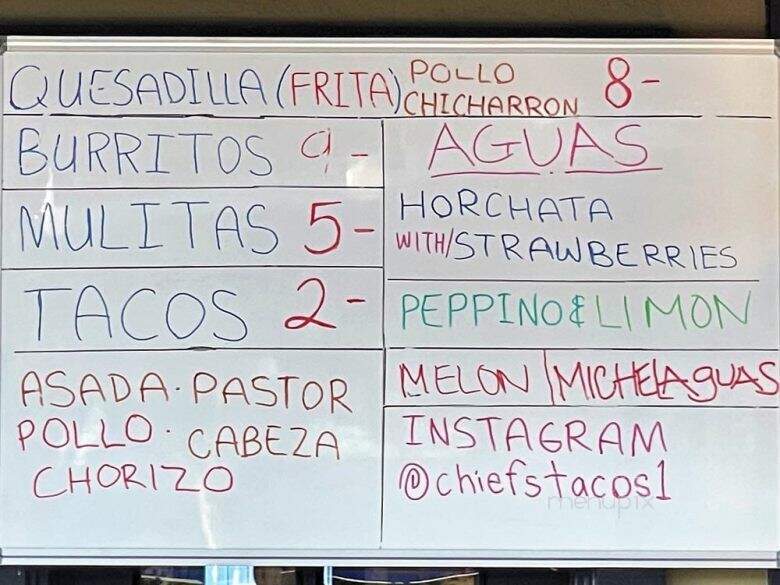 QUESADILLA (FRITA) POLLO CHICHARRON 8-
BURRITOS 9-
MULITAS 5-
TACOS 2-
ASADA · PASTOR
POLLO · CABEZA
CHORIZO
AGUAS
HORCHATA
WITH/STRAWBERRIES
PEPPINO & LIMON
MELON | MICHELAGUAS
INSTAGRAM
@chiefstacos1
menupix